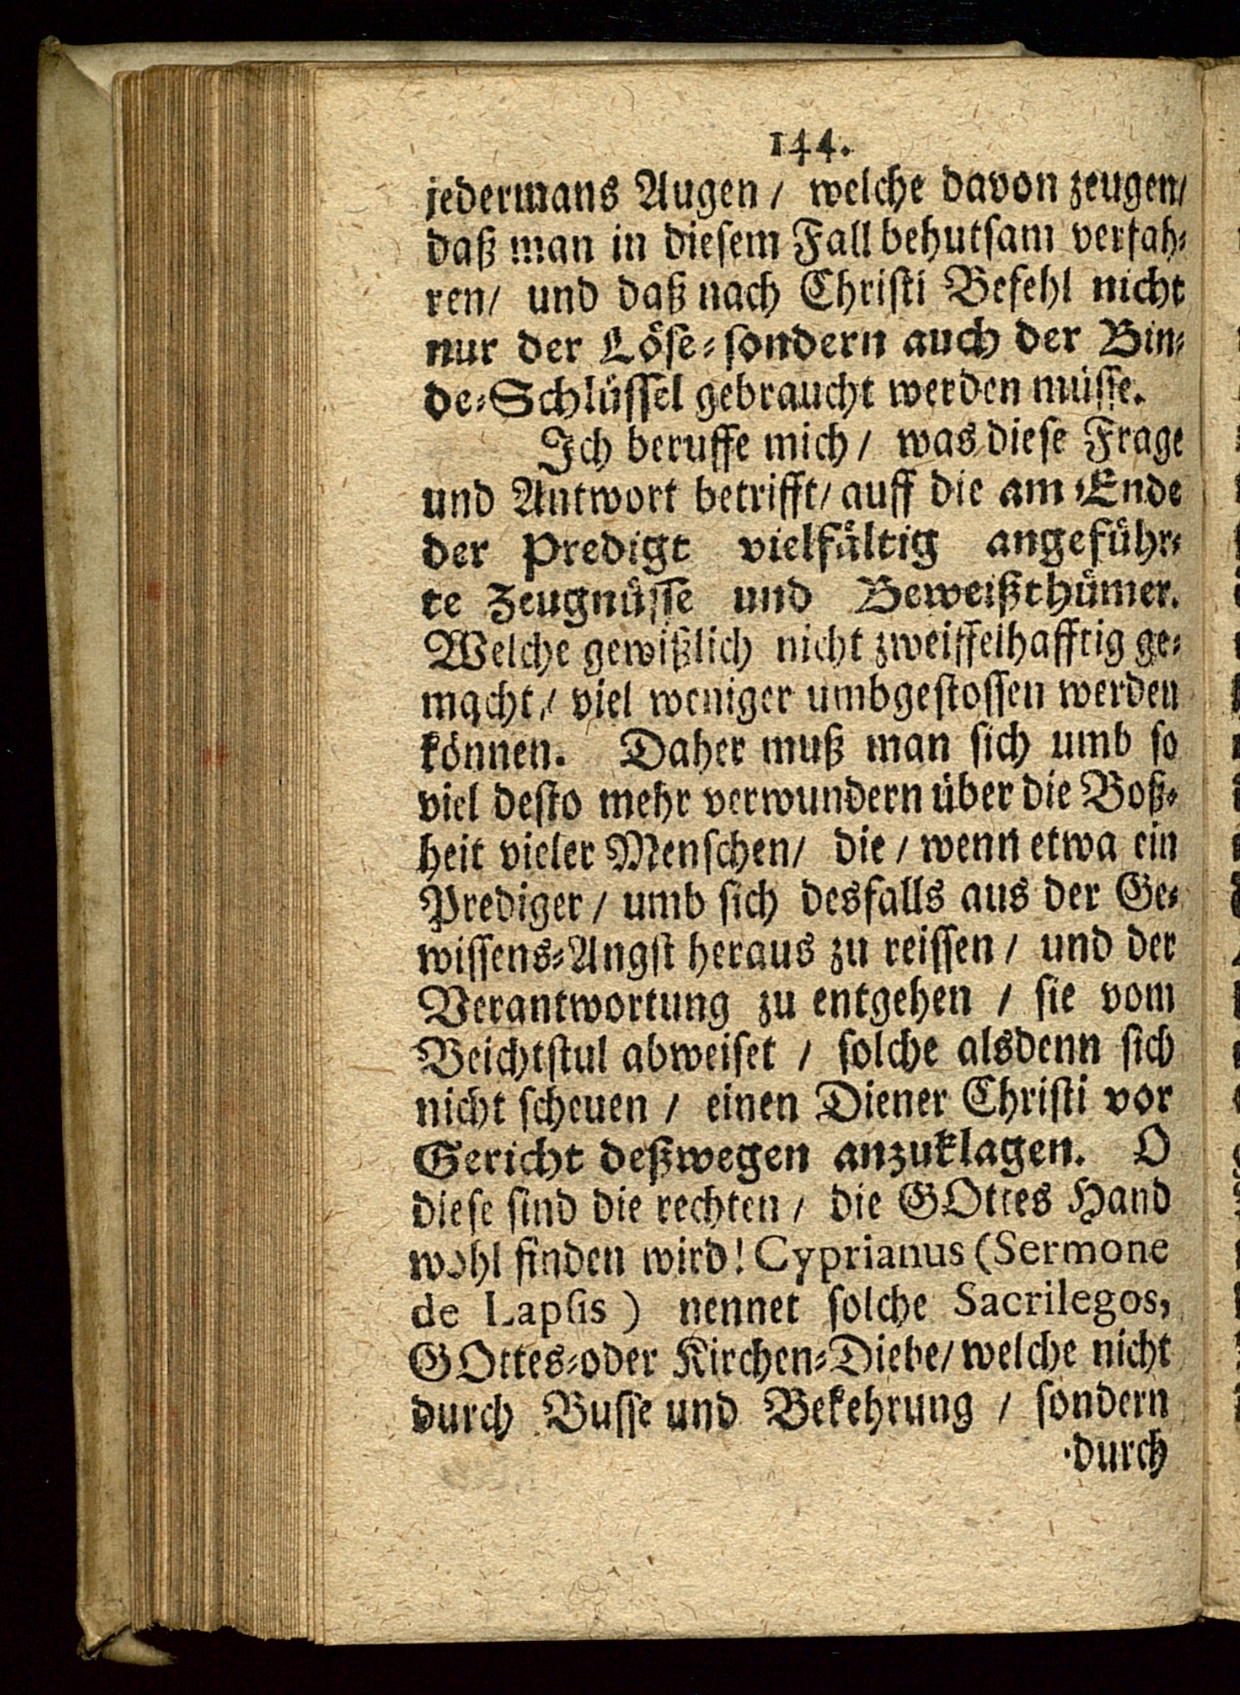 144.
jedermans Augen / welche davon zeugen/
daß man in diesem Fall behutsam verfah-
ren/ und daß nach Christi Befehl nicht
nur der Löse- sondern auch der Bin-
de-Schlüssel gebraucht werden müsse.
Ich beruffe mich / was diese Frage
und Antwort betrifft/ auff die am Ende
der Predigt vielfältig angeführ-
te Zeugnüsse und Beweißthümer.
Welche gewißlich nicht zweiffelhafftig ge-
macht / viel weniger umbgestossen werden
können. Daher muß man sich umb so
viel desto mehr verwundern über die Boß-
heit vieler Menschen/ die / wenn etwa ein
Prediger / umb sich desfalls aus der Ge-
wissens-Angst heraus zu reissen / und der
Verantwortung zu entgehen / sie vom
Beichtstul abweiset / solche alsdenn sich
nicht scheuen / einen Diener Christi vor
Gericht deßwegen anzuklagen. O
diese sind die rechten / die GOttes Hand
wohl finden wird! Cyprianus (Sermone
de Lapsis ) nennet solche Sacrilegos,
GOttes-oder Kirchen-Diebe/ welche nicht
durch Busse und Bekehrung / sondern
durch